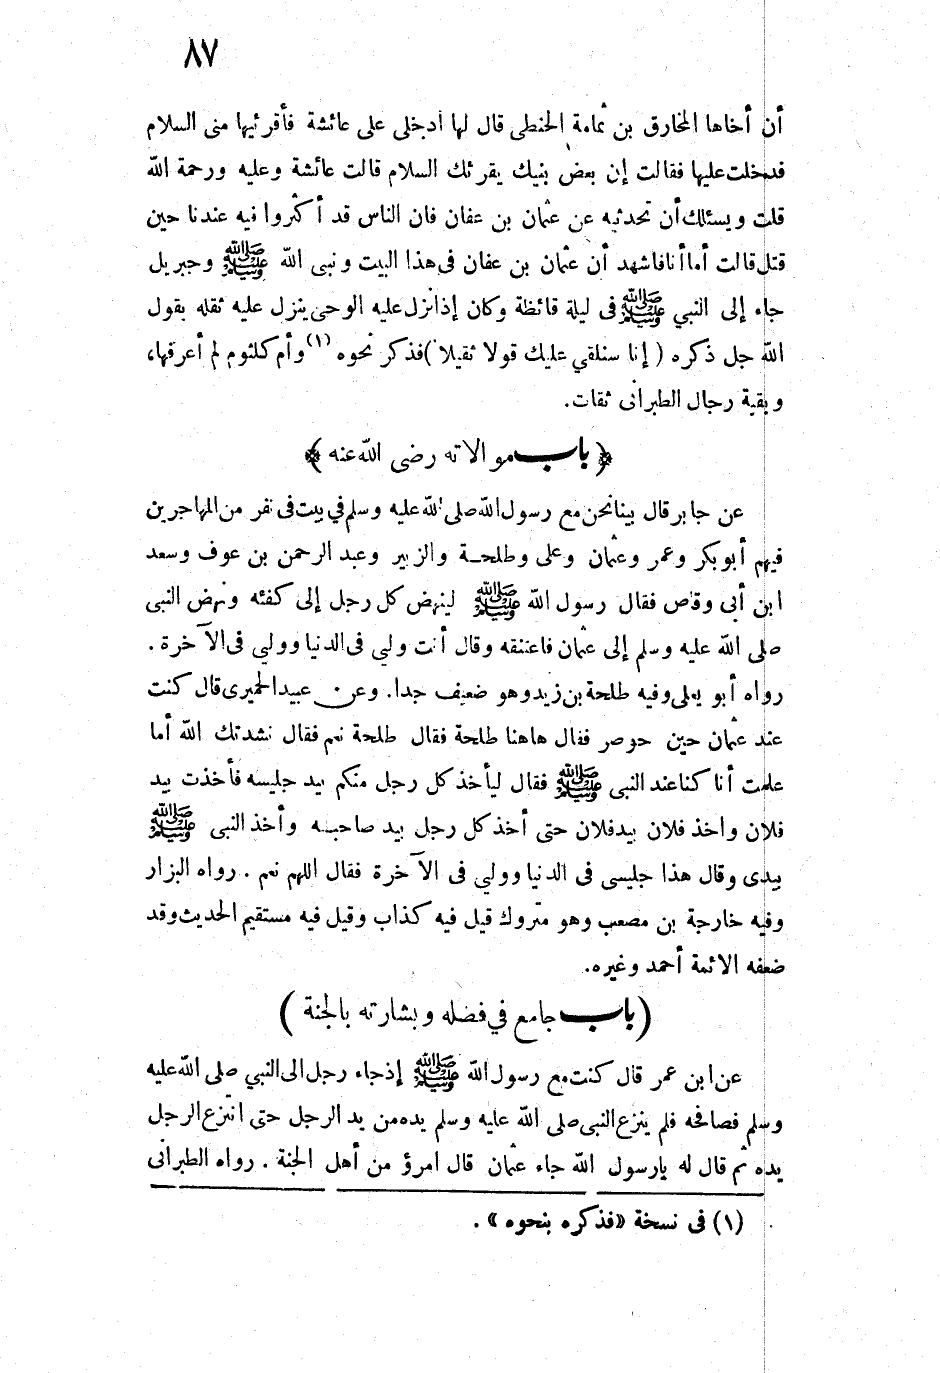 ٨٧
أن أخاها المخارق بن ثمامة الحنطى قال لها ادخلى على عائشة فأقرئيها منى السلام
فدخلت عليها فقالت إن بعض بنيك يقرئك السلام قالت عائشة وعليه ورحمة الله
قلت ويسئلك أن تحدثيه عن عثمان بن عفان فان الناس قد أكثروا فيه عندنا حين
قتل قالت أما أنا فاشهد أن عثمان بن عفان فى هذا البيت ونبى الله ﷺ وجبريل
جاء إلى النبي ﷺ فى ليلة قائظة وكان إذا نزل عليه الوحى ينزل عليه ثقله يقول
الله جل ذكره ( إنا سنلقي عليك قولا ثقيلا ) فذكر نحوه (١) وأم كلثوم لم أعرفها،
وبقية رجال الطبرانى ثقات.
﴿ باب موالاته رضى الله عنه ﴾
عن جابر قال بينا نحن مع رسول الله صلى الله عليه وسلم في بيت فى نفر من المهاجرين
فيهم أبو بكر وعمر وعثمان وعلى وطلحة والزبير وعبد الرحمن بن عوف وسعد
ابن أبى وقاص فقال رسول الله ﷺ لينهض كل رجل إلى كفئه ونهض النبى
صلى الله عليه وسلم إلى عثمان فاعتنقه وقال أنت وليي فى الدنيا ووليي فى الآخرة .
رواه أبو يعلى وفيه طلحة بن زيد وهو ضعيف جدا. وعن عبيد الحميرى قال كنت
عند عثمان حين حوصر فقال هاهنا طلحة فقال طلحة نعم فقال نشدتك الله أما
علمت أنا كنا عند النبى ﷺ فقال ليأخذ كل رجل منكم بيد جليسه فأخذت بيد
فلان وأخذ فلان بيد فلان حتى أخذ كل رجل بيد صاحبه وأخذ النبى ﷺ
بيدى وقال هذا جليسى فى الدنيا ووليي فى الآخرة فقال اللهم نعم . رواه البزار
وفيه خارجة بن مصعب وهو متروك قيل فيه كذاب وقيل فيه مستقيم الحديث وقد
ضعفه الائمة أحمد وغيره.
( باب جامع في فضله وبشارته بالجنة )
عن ابن عمر قال كنت مع رسول الله ﷺ إذ جاء رجل الى النبي صلى الله عليه
وسلم فصافحه فلم ينزع النبى صلى الله عليه وسلم يده من يد الرجل حتى انتزع الرجل
يده ثم قال له يارسول الله جاء عثمان قال امرؤ من أهل الجنة . رواه الطبرانى
(١) فى نسخة «فذكره بنحوه» .